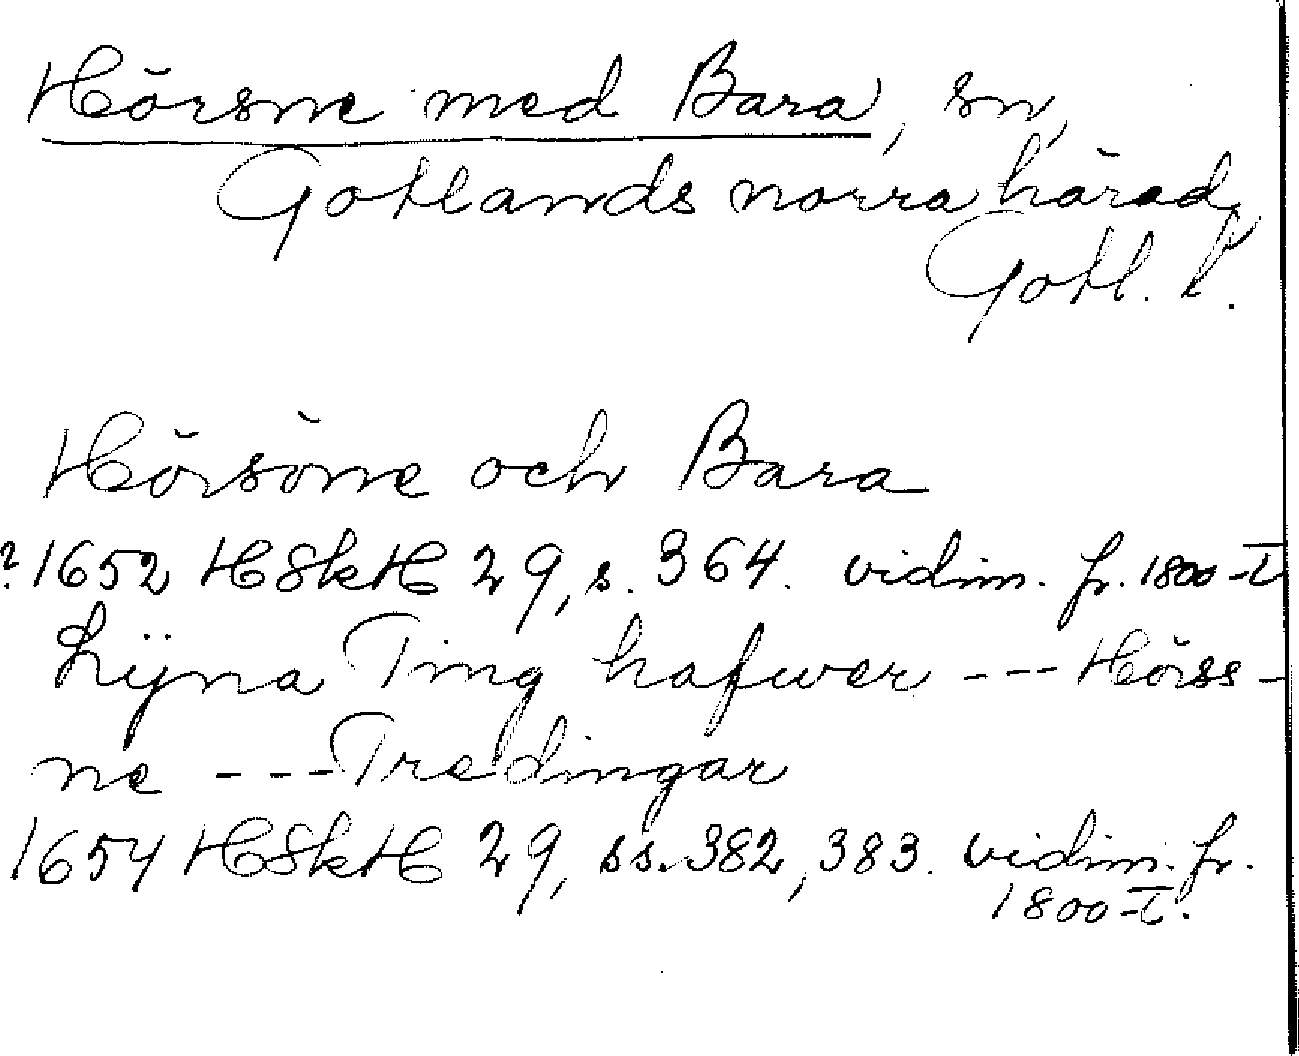 Hörsne med Bara, sn,
Gotlands norra härad,
Gotl. l.
Hörsöne och Bara
? 1652 HSkH 29, s. 364. vidim. fr. 1800-t
Lijna Ting hafwer --- Hörss-
ne --- Tredingar
1654 HSkH 29, ss. 382, 383. vidim. fr.
1800-t.